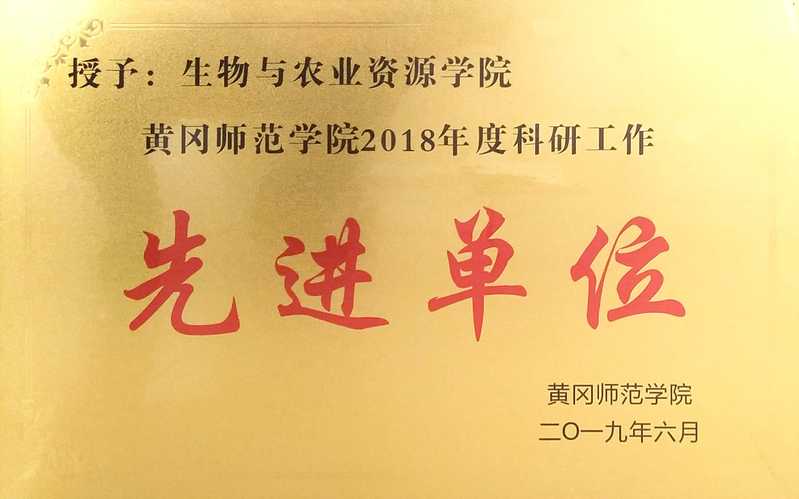 授予：生物与农业资源学院
黄冈师范学院2018年度科研工作
先进单位
黄冈师范学院
二〇一九年六月